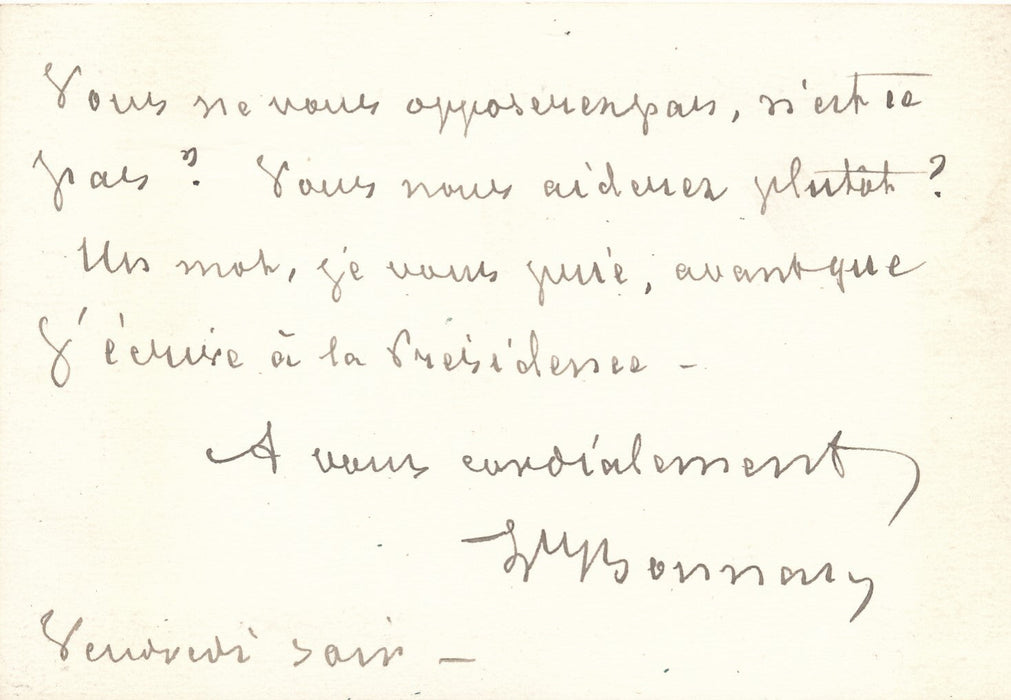 Vous ne vous opposerez pas, n'est ce
pas ? Vous nous aiderez plutôt ?
Un mot, je vous prie, avant que
j'écrive à la Présidence -
A vous cordialement
Bonnary
Vendredi soir -